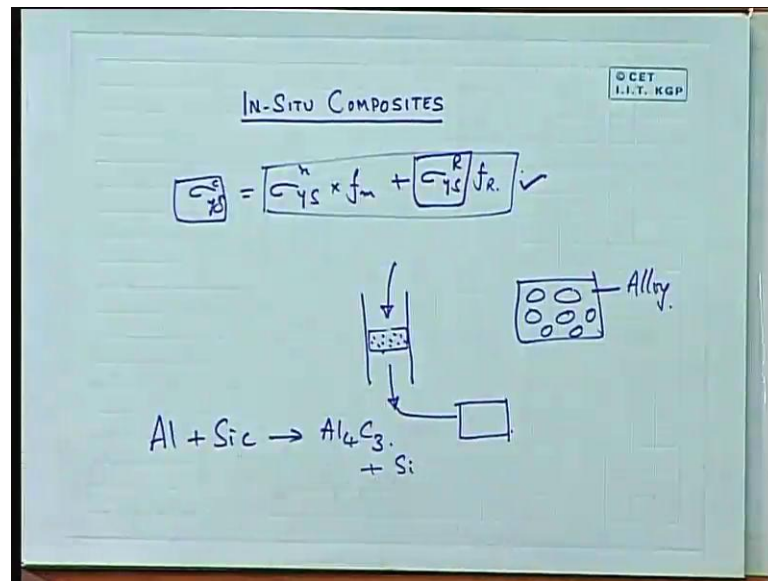 © CET
I.I.T. KGP
IN-SITU COMPOSITES
σ^c_ys = σ^m_ys × f_m + σ^R_ys f_R. ✓
Alloy.
Al + Sic → Al₄C₃.
+ Si